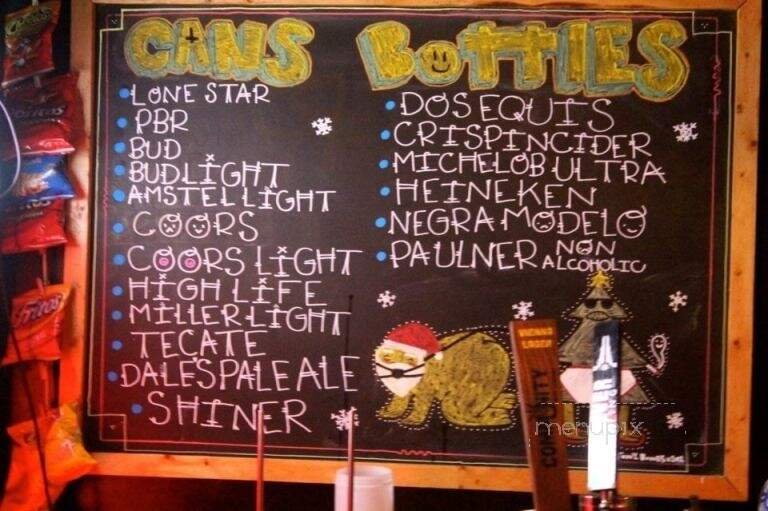 CANS
LONE STAR
PBR
BUD
BUD LIGHT
AMSTEL LIGHT
COORS
COORS LIGHT
HIGH LIFE
MILLER LIGHT
TECATE
DALE'S PALE ALE
SHINER
BOTTLES
DOS EQUIS
CRISPIN CIDER
MICHELOB ULTRA
HEINEKEN
NEGRA MODELO
PAULNER NON
ALCOHOLIC
Fritos
VIENNA
LAGER
menupix